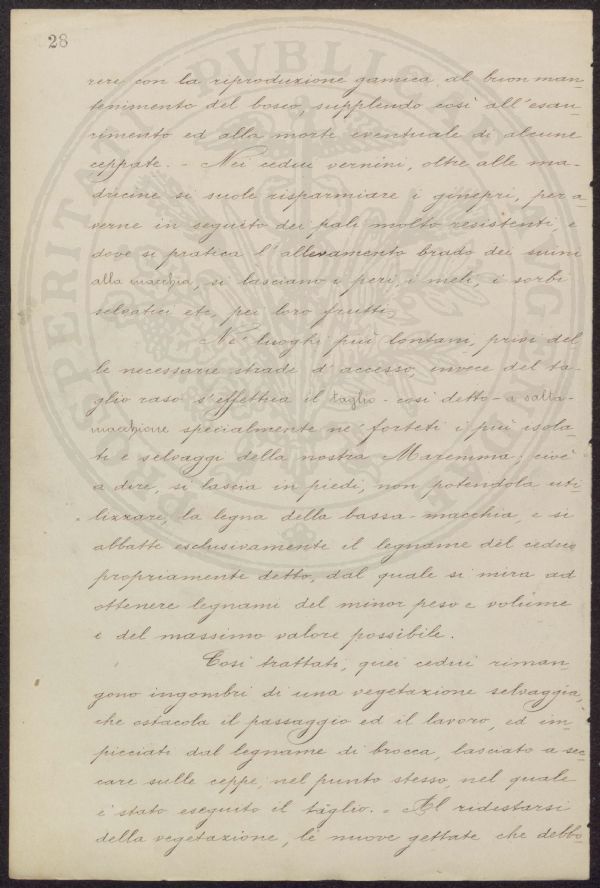 28
rere con la reproduzione gamica al buon man-
tenimento del bosco, supplendo così all'esau-
rimento ed alla morte eventuale di alcune
ceppate. - Nei cedui vernini, oltre alle ma-
dricine si suole risparmiare i ginepri, per a-
verne in seguito dei pali molto resistenti, e
dove si pratica l'allevamento brado dei suini
alla macchia, si lasciano i peri, i meli, i sorbi
selvatici etc, pei loro frutti.
Ne' luoghi più lontani, privi del
le necessarie strade d'accesso, invece del ta-
glio raso s'effettua il taglio - così detto - a salta-
macchione specialmente ne' forteti i più isola-
ti e selvaggi della nostra Maremma; cioè
a dire, si lascia in piedi, non potendola uti-
lizzare, la legna della bassa-macchia, e si
abbatte esclusivamente il legname del ceduo
propriamente detto, dal quale si mira ad
ottenere legnami del minor peso e volume
e del massimo valore possibile.
Così trattati, quei cedui riman-
gono ingombri di una vegetazione selvaggia,
che ostacola il passaggio ed il lavoro, ed im-
picciati dal legname di brocca, lasciato a sec-
care sulle ceppe, nel punto stesso, nel quale
è stato eseguito il taglio. - Al ridestarsi
della vegetazione, le nuove gettate che debbo-